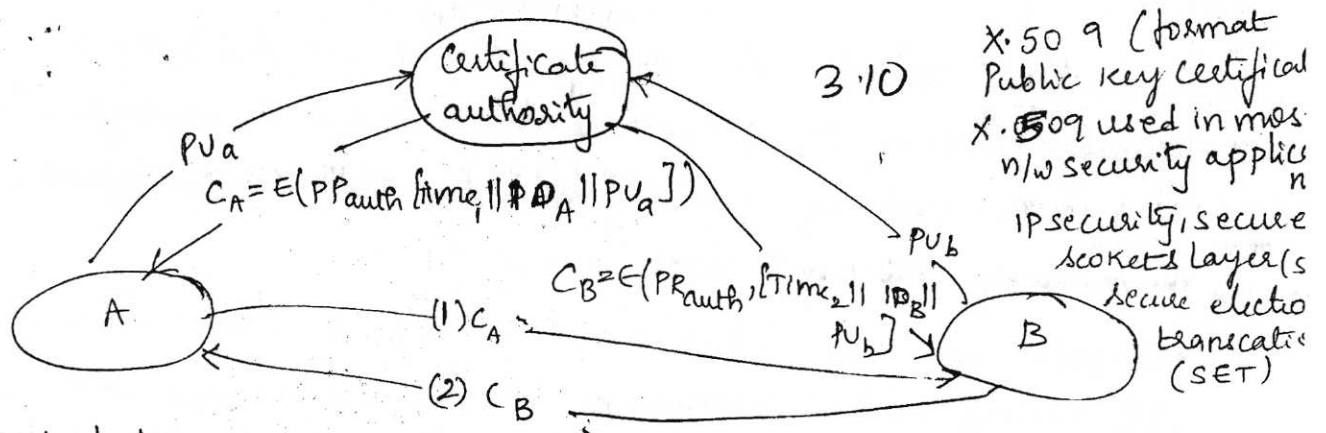 Certificate
authority
3.10
X.509 (format
Public key Certifical
X.509 used in mos
n/w security applics
n
IP security, secure
scokets Layer (s
secure electro
transcatic
(SET)
PUa
C_A = E(PPauth [time1 || ID_A || PUa])
PUb
C_B = E(PRauth, [Time2 || ID_B ||
PUb]
A
(1) C_A
B
(2) C_B